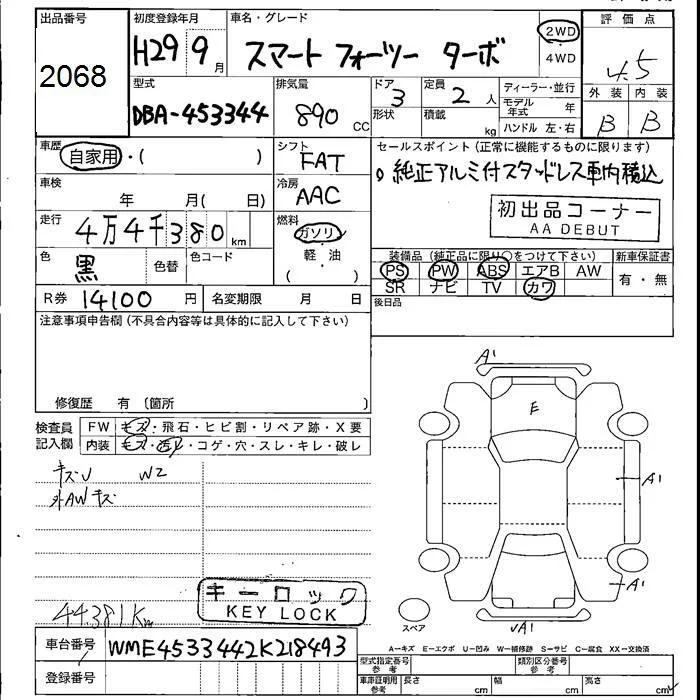 出品番号 初度登録年月 車名・グレード 評価点
2068 H29 9月 スマート フォーツー ターボ 2WD・4WD 4.5
型式 排気量 ドア 定員 ディーラー・並行 外装 内装
DBA-453344 890 CC 3 2人 モデル年式 年 B B
形状 積載 kg ハンドル 左・右
車歴 シフト セールスポイント(正常に機能するものに限ります)
自家用・( ) FAT 純正アルミ付スタッドレス車内積込
車検 冷房
年 月( 日) AAC 初出品コーナー
AA DEBUT
走行 燃料
4万4千380km ガソリン
装備品(純正品に限り○をつけて下さい) 新車保証書
色 色替 色コード 軽・油 PS PW ABS エアB AW 有・無
黒 ( ) SR ナビ TV カワ
R券 14100円 名変期限 月 日 後日品
注意事項申告欄(不具合内容等は具体的に記入して下さい)
修復歴 有(箇所 )
検査員記入欄 FW キズ・飛石・ヒビ割・リペア跡・X要
内装 キズ・汚レ・コゲ・穴・スレ・キレ・破レ
キズU W2
外AWキズ
A1
E
A1
A1
キーロック
KEY LOCK
44.381Km
スペア
A1
A-キズ E-エクボ U-凹み W-補修跡 S-サビ C-腐食 XX-交換済
車台番号 WME4533442K218493
型式指定番号 参考 類別区分番号 参考
登録番号 車庫証明用 参考 長さ cm 幅 cm 高さ cm